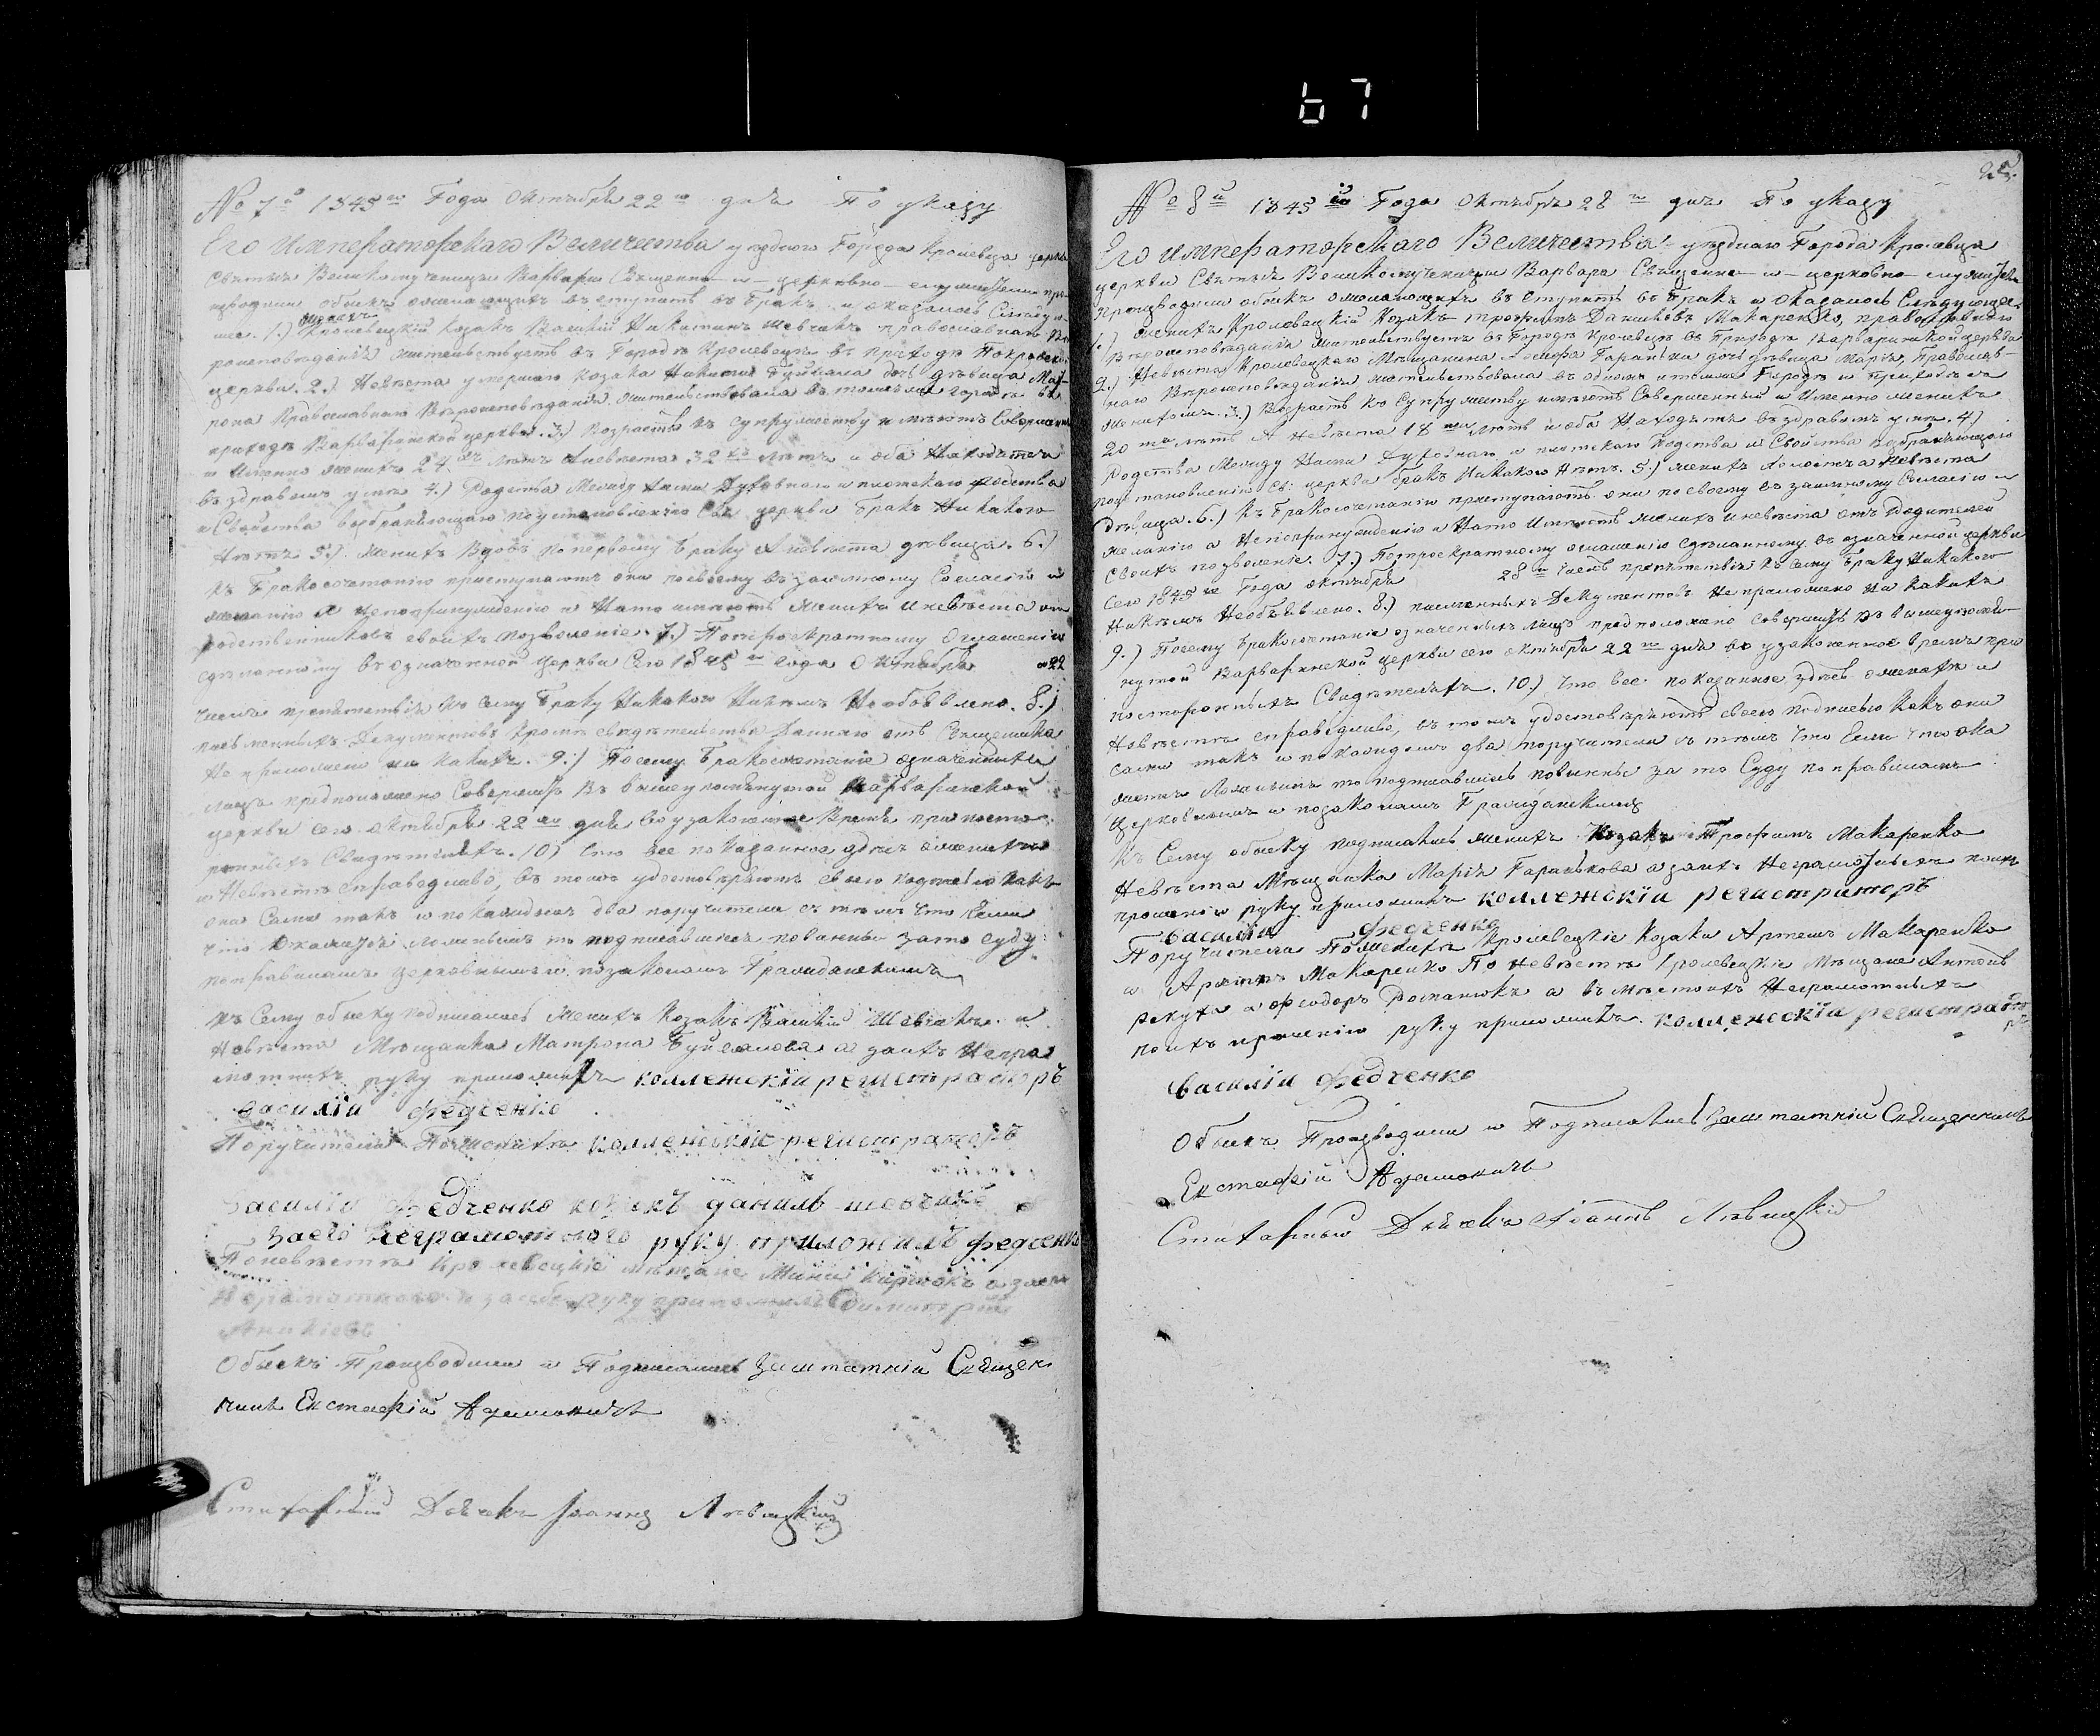 67
№ 7й 1845го Года Октября 22го дня По указу
Его Императорскаго Величества уезднаго Города Кролевца церкви
Святыя Великомученицы Варвары Священно и церковно служители про
изводили обыскъ о желающихъ вступить въ бракъ и оказалось следую
женихъ
щее. 1.) Кролевецкій козакъ Никитинъ Шевчакъ православнаго Ве
роисповеданія жительствуетъ въ Городе Кролевце въ приходе Покровской
церкви. 2.) Невеста умершаго козака Никиты дочь девица Мат
рона Православнаго Вероисповеданія жительствовала въ томъ же городе въ
приходе Варваринской церкви. 3.) Возрастъ къ супружеству имеютъ Совершенный
и Именно женихъ летъ а невеста летъ и оба Находятся
въ здравомъ уме 4.) Родства Между Ними Духовнаго и плотскаго родства
и Свойства возбраняющаго по установленію Св: церкви Бракъ Никакого
Нетъ 5.) Женихъ Вдовъ по первому Браку А невеста девица. 6.)
Къ Бракосочетанію приступаютъ они по своему взаимному Согласію и
желанію А не по принужденію и На то имеютъ Женихъ и невеста отъ
родственниковъ своихъ позволеніе. 7.) По троекратному Оглашенію
сделанному въ означенной церкви Сего 1845го года Октября 22
числа препятствія къ сему Браку Никакого Никемъ Не объявлено. 8.)
письменныхъ Документовъ кроме свидетельства Даннаго отъ Священника
Не приложено ни какихъ. 9.) Посему Бракосочетаніе означенныхъ
лицъ предположено Совершить въ вышеупомянутой Варваринской
церкви сего октября 22го дня въ узаконенное Время при посто
роннихъ Свидетеляхъ. 10) Что все показанное здесь о женихе
и Невесте справедливо, въ томъ удостоверяютъ своею подписью какъ
они Сами такъ и по каждомъ два поручителя съ темъ что Если
что Окажется Ложнымъ то подписавшіеся повинны за то суду
по правиламъ церковнымъ и по законамъ Гражданскимъ
Къ Сему обыску подписались Женихъ Козакъ Шевчакъ и
Невеста Мещанка Матрона а за нихъ Негра
мотныхъ руку приложилъ коллежскій регистраторъ
Василій Федченко
Поручители По женихе коллежскій регистраторъ
Василій Федченко козакъ данилъ шевчакъ
за его неграмотного руку приложилъ федченко
По невесте Кролевецкіе мещане
неграмотного и за себя руку приложилъ

Обыскъ Производили и Подписались Заштатній Священ
никъ Евстафій Адамовичъ
Стихарный Дьячекъ Іоаннъ
25
№ 8й 1845го Года Октября 28го дня По указу
Его Императорскаго Величества уезднаго Города Кролевца
церкви Святыя Великомученицы Варвары Священно и церковно служители
производили обыскъ о желающихъ вступить въ бракъ и оказалось Следующее
1.) Женихъ Кролевецкій Козакъ Трофимъ Даниловъ Макаренко, православнаго
Вероисповеданія жительствуетъ въ Городе Кролевце въ Приходе Варваринской церкви
2.) Невеста Кролевецкаго Мещанина Іосифа Гараньки дочь девица Марія, Православ
наго Вероисповеданія жительствовала въ одномъ и томже Городе и Приходе съ
Женихомъ. 3.) Возрастъ къ Супружеству имеютъ Совершенный и Именно женихъ
20ть летъ А невеста 18ть летъ и оба Находятся въ здравомъ уме. 4)
Родства Между Ними Духовнаго и плотскаго Родства и Свойства возбраняющаго
по установленію Св: церкви бракъ Никакого Нетъ. 5.) Женихъ холостъ а Невеста
девица. 6.) Къ Бракосочетанію приступаютъ они по своему взаимному Согласію и
желанію а Не по принужденію и На то Имеютъ женихъ и невеста отъ Родителей
своихъ позволеніе. 7.) По троекратному оглашенію сделанному въ означенной церкви
сего 1845го Года октября 28го числъ препятствія къ сему Браку Никакого
Никемъ Необъявлено. 8.) письменныхъ Документовъ Не приложено Ни какихъ
9.) Посему Бракосочетаніе означенныхъ лицъ предположено совершить въ вышеупомя
нутой Варваринской церкви сего октября 22го дня въ узаконенное время при
постороннихъ Свидетеляхъ. 10.) Что все показанное здесь о женихе и
Невесте справедливо, въ томъ удостоверяютъ своею подписью какъ они
сами такъ и по каждомъ два поручителя съ темъ что Если что ока
жется Ложнымъ то подписавшіесь повинны за то Суду по правиламъ
церковнымъ и по законамъ Гражданскимъ
Къ Сему обыску подписались женихъ Козакъ Трофимъ Макаренко
Невеста Мещанка Марія Гаранькова а за нихъ Неграмотныхъ по ихъ
прошенію руку приложилъ коллежскій регистраторъ
Василій Федченко
Поручители По женихе Кролевецкіе Козаки Артемъ Макаренко
и Макаренко По Невесте Кролевецкіе Мещане Антонъ
и Федоръ Романюкъ а вместо ихъ Неграмотныхъ
по ихъ прошенію руку приложилъ коллежскій регистраторъ
Василій Федченко
Обыскъ Производили и Подписались Заштатній Священникъ
Евстафій Адамовичъ
Стихарный Дьячекъ Іоаннъ